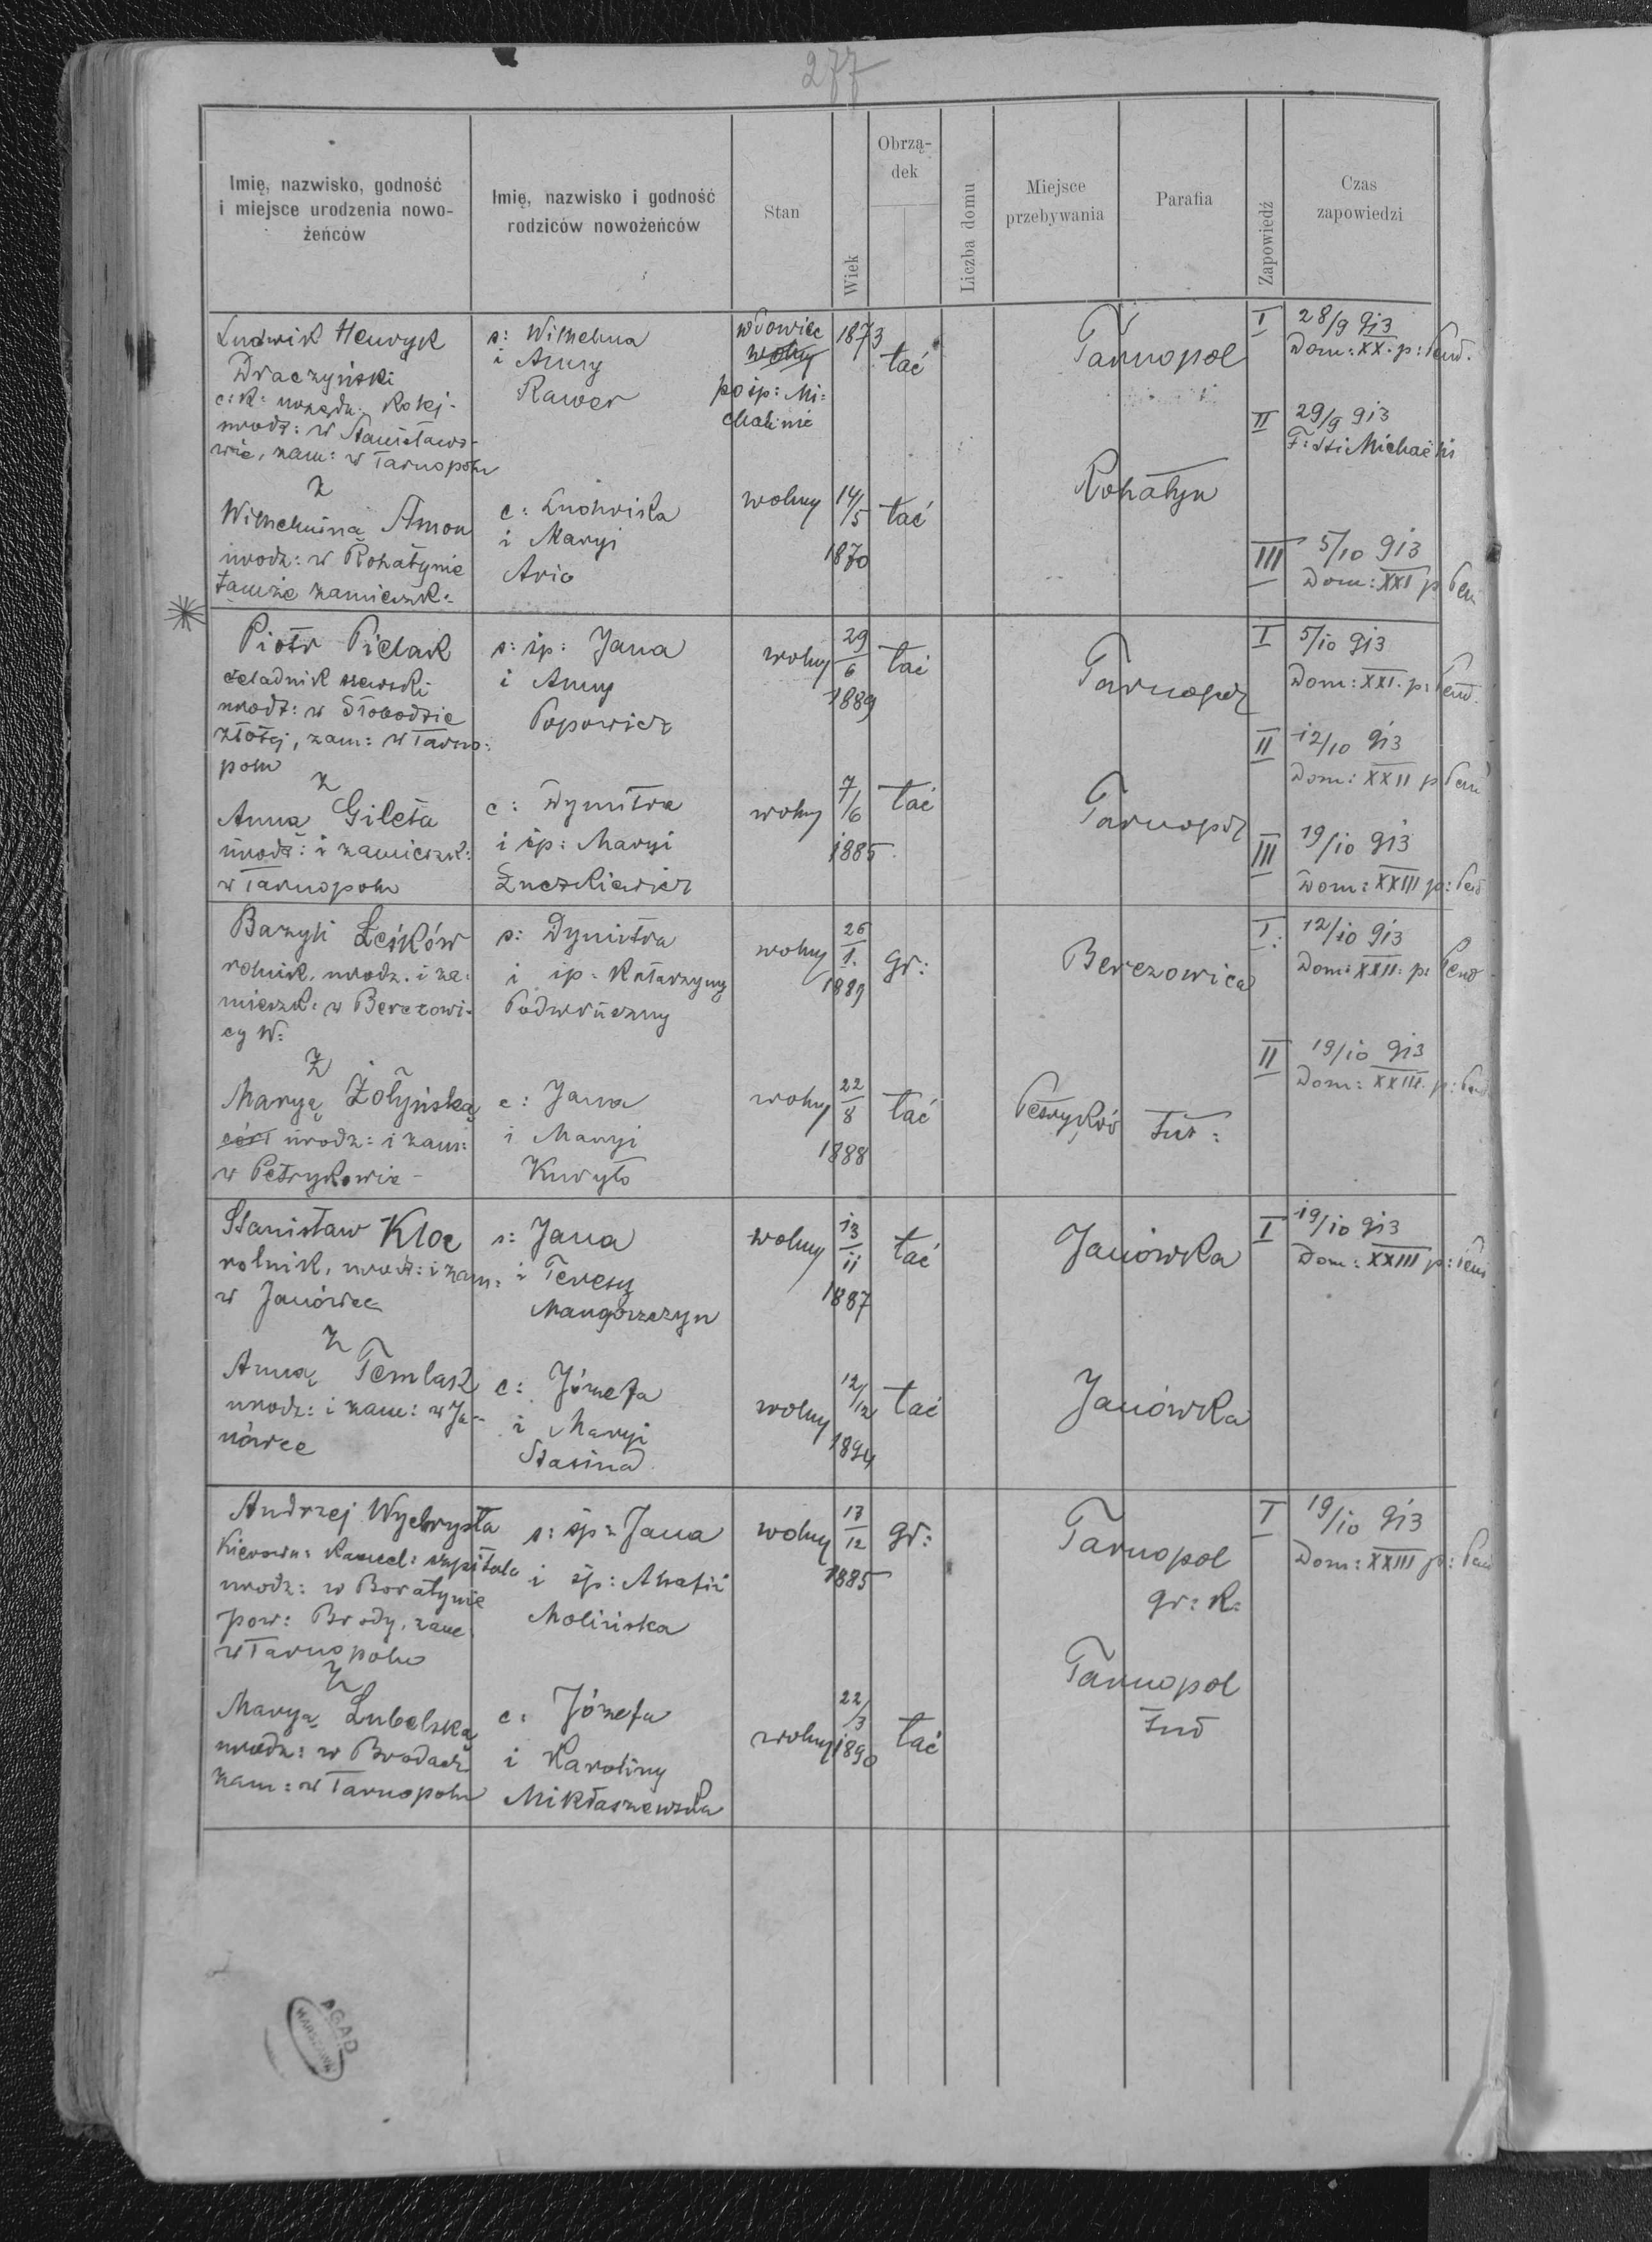 277
Imię, nazwisko, godność
i miejsce urodzenia nowo-
żeńców
Imię, nazwisko i godność
rodziców nowożeńców
Stan
Wiek
Obrzą-
dek
Liczba domu
Miejsce
przebywania
Parafia
Zapowiedź
Czas
zapowiedzi
Ludwik Henryk
Draczyński
c: k: urzędn: kolej-
urodz: w Stanisławo-
wie, zam: w Tarnopolu
z
Wilhelminą Amon
urodz: w Rohatynie
tamże zamieszk:
s: Wilhelma
i Anny
Rawer
c: Ludwika
i Maryi
Ario
wdowiec
wolny
po śp: Mi:
chalinie
1873
łać
wolny
14/5
1870
łać
Tarnopol
Rohatyn
I
28/9 913
Dom: XX. p: Pent.
II
29/9 913
F: Sti Michaëlis
III
5/10 913
Dom: XXI p Pen
Piotr Pielak
czeladnik szewski
urodz: w Słobodzie
złotej, zam: w Tarno:
polu
z
Anną Gileta
urodz: i zamieszk:
w Tarnopolu
s: śp: Jana
i Anny
Popowicz
c: Dymitra
i śp: Maryi
Łuczkiewicz
wolny
29/6
1889
łać
wolny
7/6
1885
łać
Tarnopol
Tarnopol
I
5/10 913
Dom: XXI. p: Pent.
II
12/10 913
Dom: XXII p Pent
III
19/10 913
Dom: XXIII p: Pent
Bazyli Leśków
rolnik, urodz. i za:
mieszk: w Berezowi-
cy W:
z
Maryą Żołyńską
córk urodz: i zam:
w Petrykowie -
s: Dymitra
i śp: Katarzyny
Podwruszny
c: Jana
i Maryi
Kuryło
wolny
26/1.
1889
gr:
wolny
22/8
1888
łać
Berezowica
Petryków
tut:
I:
12/10 913
Dom: XXII: p: Pent
II
19/10 913
Dom: XXIII. p: Pent
Stanisław Kloc
rolnik, urodz: i zam:
w Janówce
z
Anną Temlasz
urodz: i zam: w Ja-
nówce
s: Jana
i Teresy
c: Józefa
i Maryi
Stasina
wolny
13/11
1887
łać
wolny
12/12
1894
łać
Janówka
Janówka
I
19/10 913
Dom: XXIII p: Pent
Andrzej Wychrysta
Kierown: kancel: szpitala
urodz: w Boratynie
pow: Brody, zam
w Tarnopolu
z
Maryą Lubelską
urodz: w Brodach
zam: w Tarnopolu
s: śp: Jana
i śp: Anafii
Molińska
c: Józefa
i Karoliny
Mikłaszewska
wolny
13/12
1885
gr:
wolny
22/3
1890
łać
Tarnopol
gr: k:
Tarnopol
I
19/10 913
Dom: XXIII p: Pent
AGAD
WARSZAWA